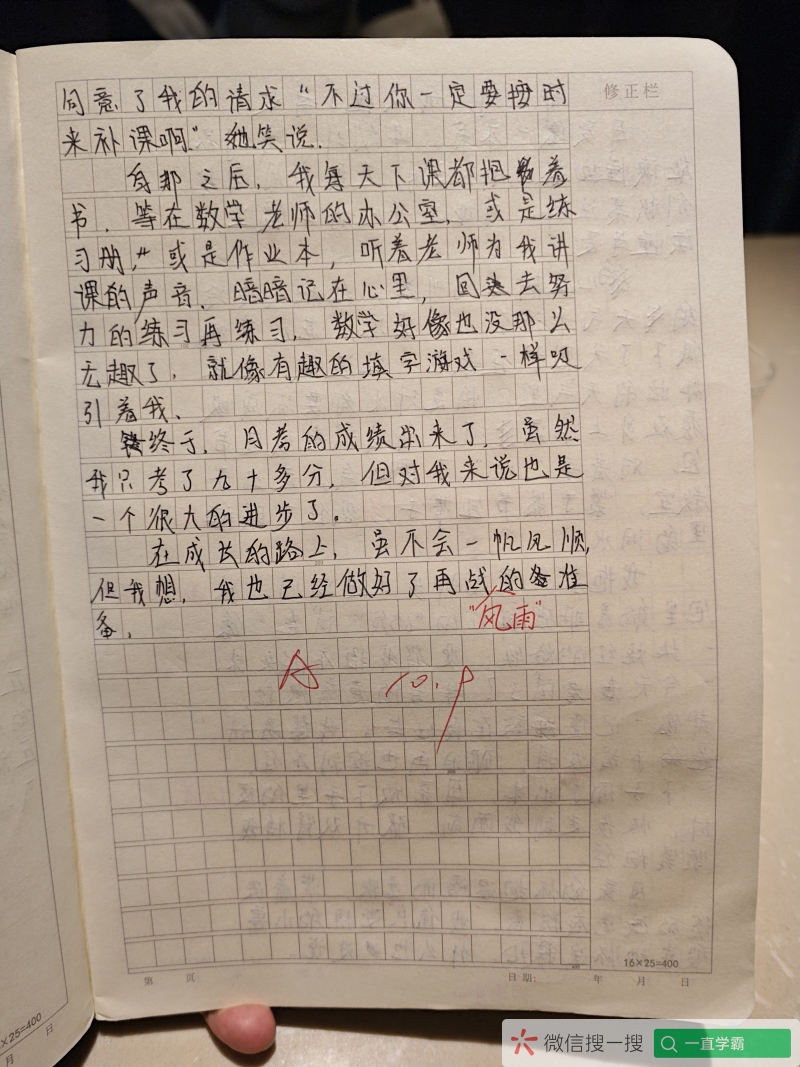 修正栏
同意了我的请求“不过你一定要按时
来补课啊”她笑说.
自那之后，我每天下课都把着
书.等在数学老师的办公室，或是练
习册，或是作业本，听着老师为我讲
课的声音.暗暗记在心里，回去努
力的练习再练习.数学好像也没那么
无趣了，就像有趣的填字游戏一样吸
引着我.
终于，月考的成绩出来了.虽然
我只考了九十多分，但对我来说也是
一个很大的进步了。
在成长的路上，虽不会一帆风顺,
但我想，我也已经做好了再战的准
备.
“风雨”
A 10.9
16×25=400
第 页
日期: 年 月 日
×25=400
月 日
微信搜一搜
一直学霸